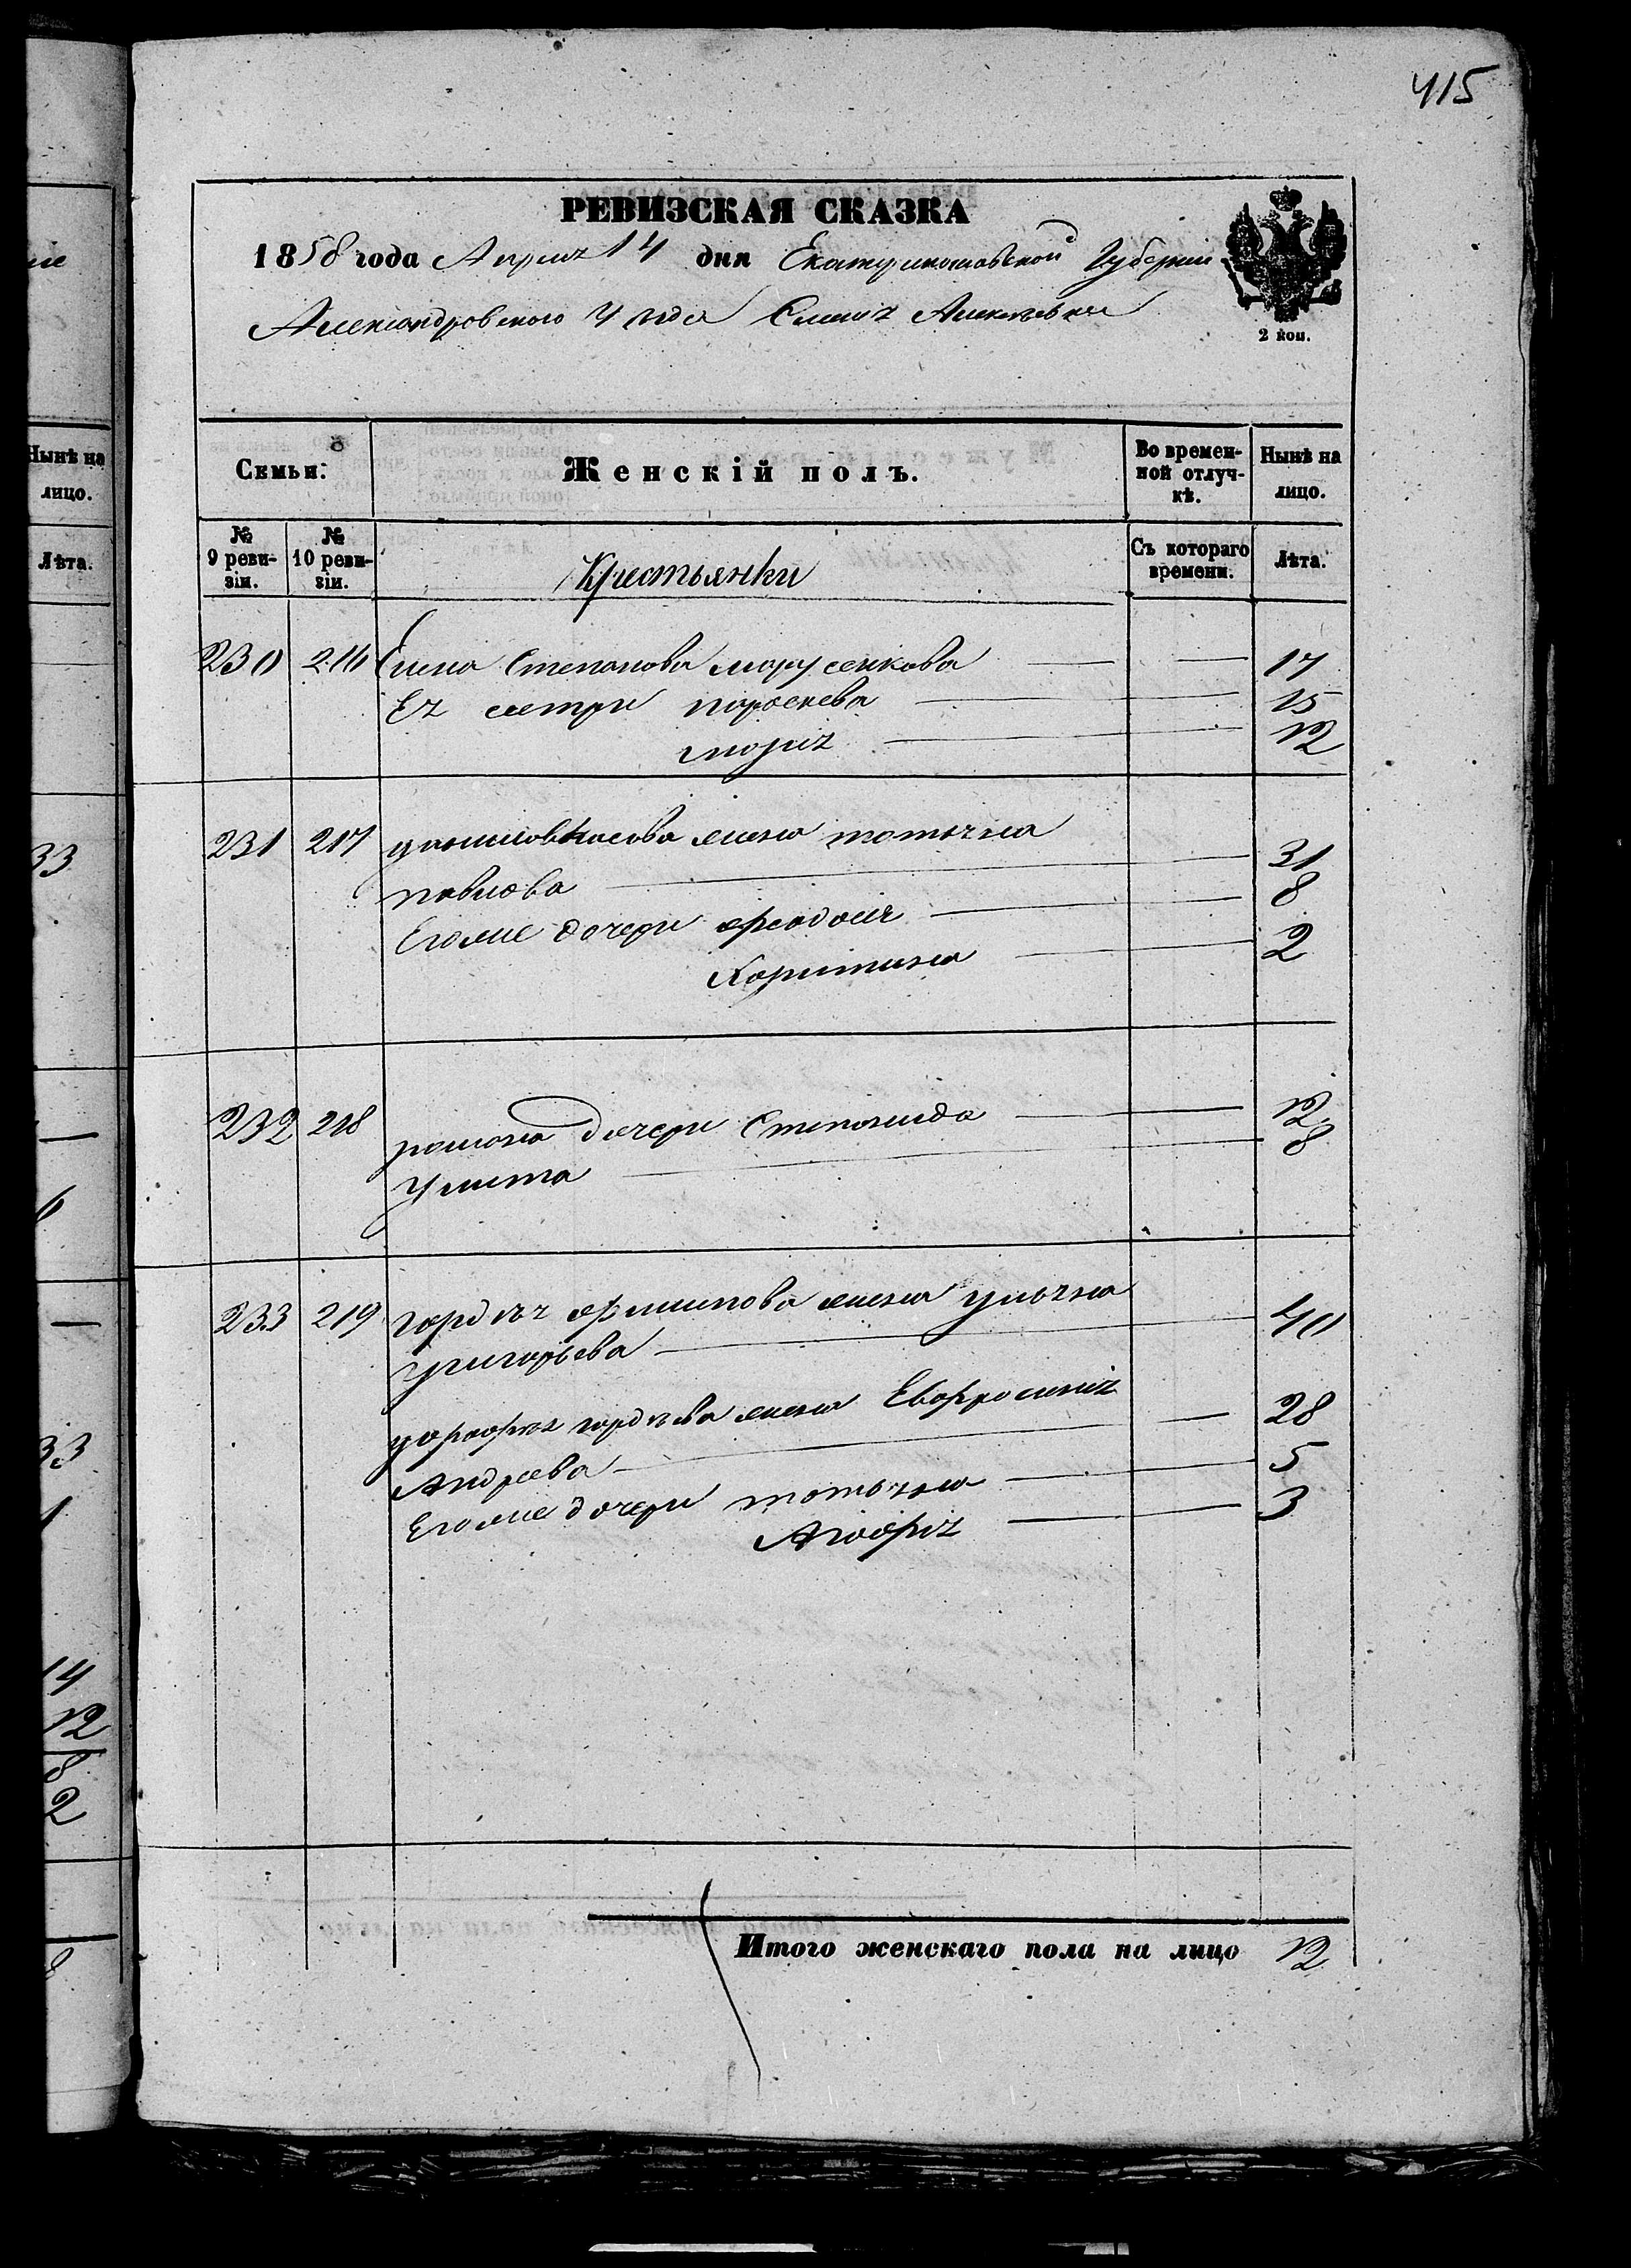 415
РЕВИЗСКАЯ СКАЗКА
1858 года Апреля 14 дня Екатеринославской Губернии
Александровского уезда Села Алексеевки
2 коп.
Семьи: Женскій полъ. Во времен-ной отлуч-кѣ. Нынѣ на лицо.
№ 9 реви-зіи. № 10 реви-зіи. Крестьянки Съ котораго времени. Лѣта.
230 216 Елена Степанова 17
Ея сестри параскева 15
марія 12
231 217 жена татьяна
павлова 31
Егоже дочери феодосія 8
Харитина 2
232 218 романа дочери Степанида 12
Улита 8
233 219 гордѣя филипова жена ульяна
Григорьева 40
гордѣева жена Евфросинія 28
Андреева
Егоже дочери татьяна 5
Агафія 3
Итого женскаго пола на лицо 12
Нынѣ на лицо.
Лѣта.
33
6
33
1
14
12
8
2